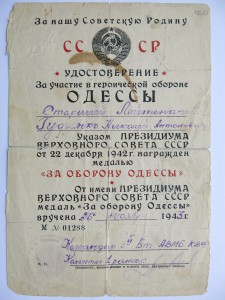 За нашу Советскую Родину
СС СР
УДОСТОВЕРЕНИЕ
За участие в героической обороне
ОДЕССЫ
Старший Лейтенант
Николай Антонович
Указом ПРЕЗИДИУМА
ВЕРХОВНОГО СОВЕТА СССР
от 22 декабря 1942 г. награжден
медалью
«ЗА ОБОРОНУ ОДЕССЫ»
От имени ПРЕЗИДИУМА
ВЕРХОВНОГО СОВЕТА СССР
медаль «За оборону Одессы»
вручена 194
М № 01288
Командир
Капитан